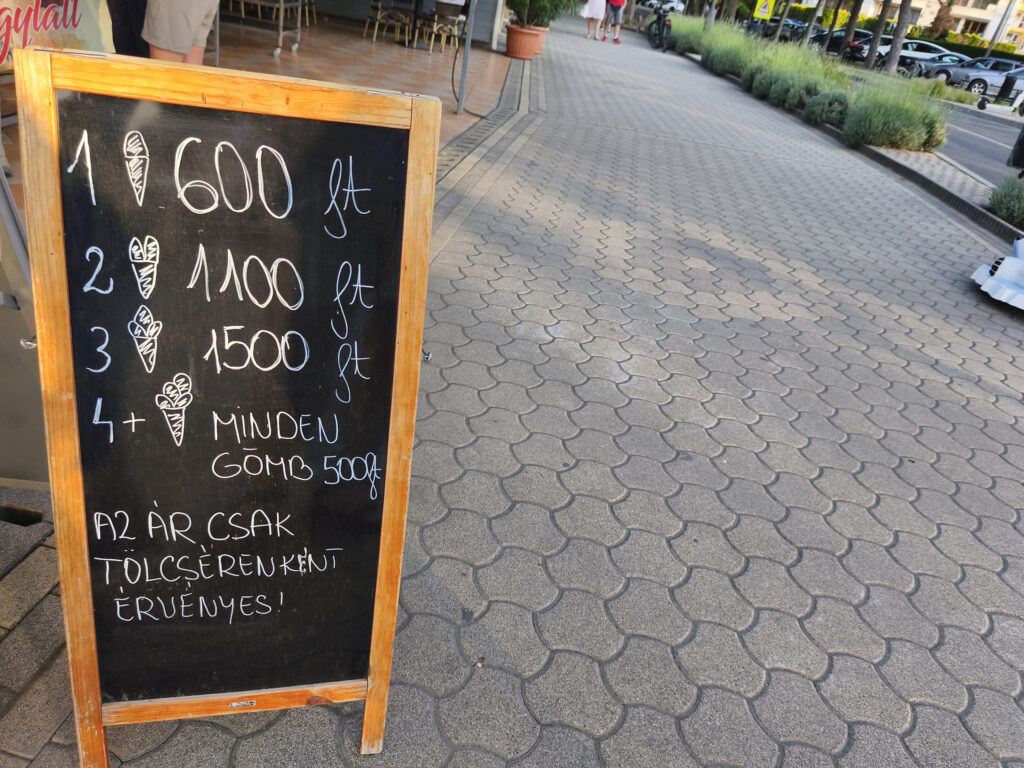 gylalt
1 600 ft
2 1100 ft
3 1500 ft
4+ MINDEN
GÖMB 500ft
AZ ÁR CSAK
TÖLCSÉRENKÉNT
ÉRVÉNYES!